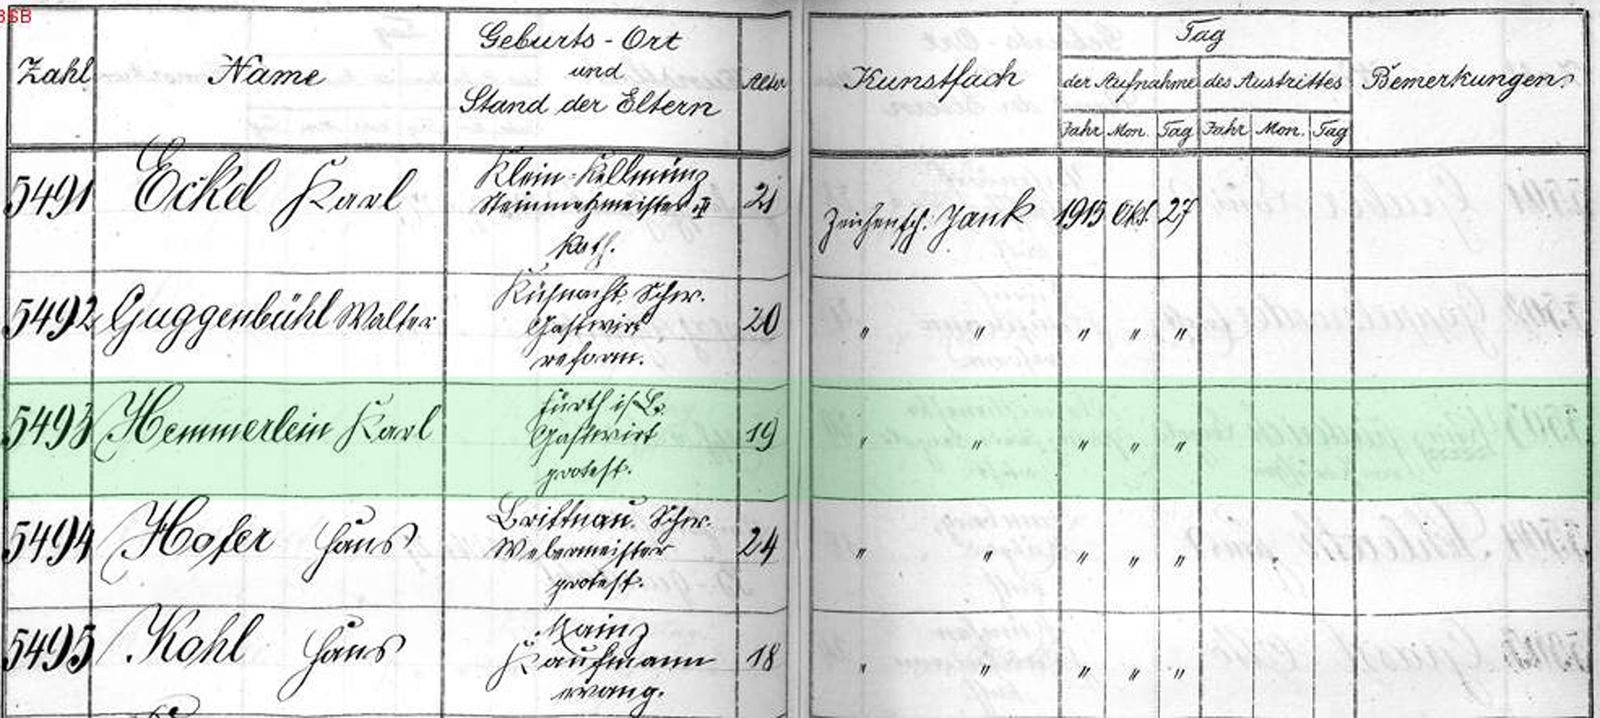 BSB
Zahl Name Geburts-Ort und Stand der Eltern Alter Kunstfach Tag Bemerkungen.
der Aufnahme des Austrittes
Jahr Mon. Tag Jahr Mon. Tag
5491 Eckel Karl Klein-Kellmünz 21 Zeichensch. Jank 1915 Okt. 27
Steinmetzmeister
kath.
5492 Guggenbühl Walter Küsnacht, Schw. 20 " " " " "
Gastwirt
reform.
5493 Hemmerlein Karl Fürth i/B. 19 " " " " "
Gastwirt
protest.
5494 Hofer Hans Brittnau. Schw. 24 " " " " "
Webermeister
protest.
5495 Kohl Hans Mainz 18 " " " " "
Kaufmann
evang.